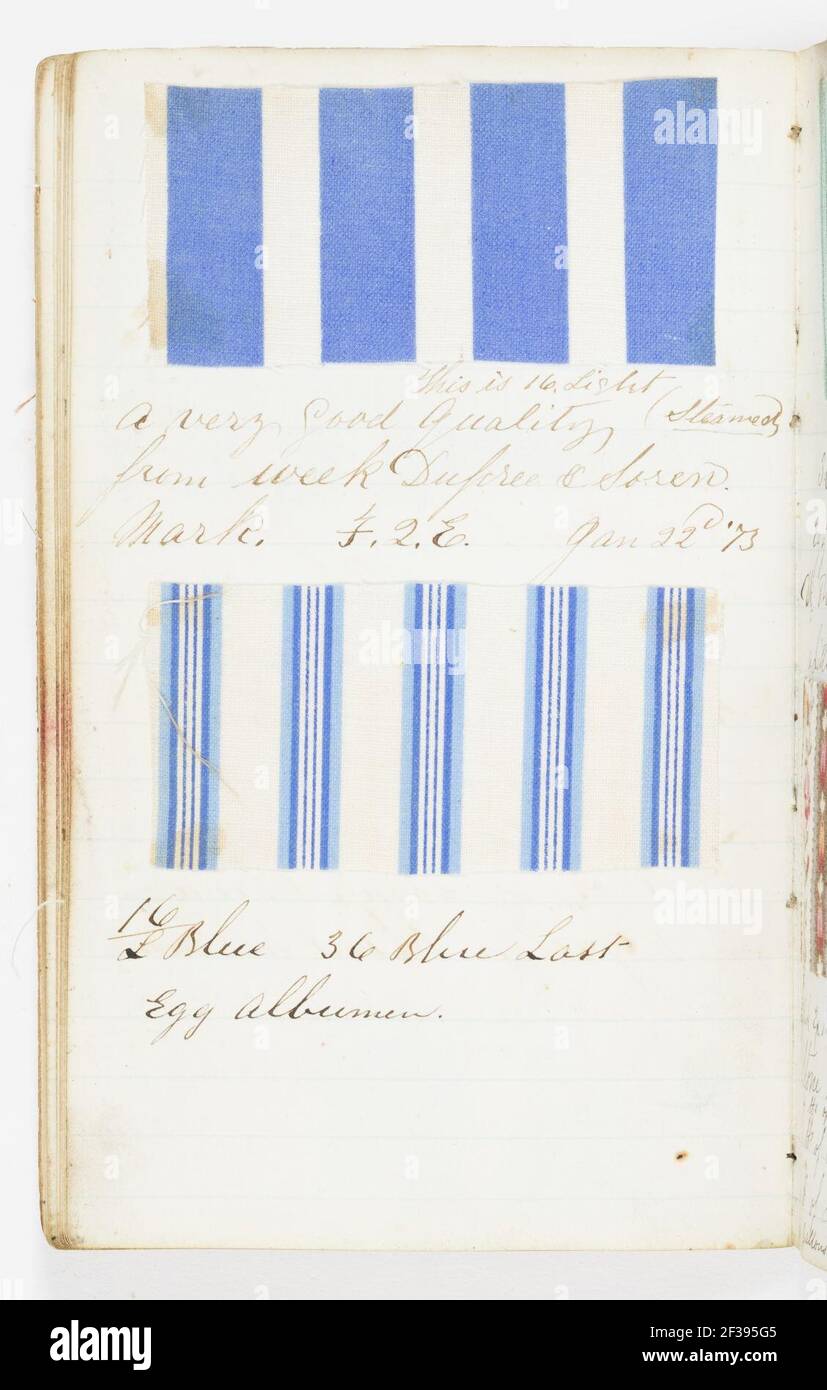 This is 16. Light
a very Good Quality (Steamed)
from week Dupree & Soren.
Mark. F. 2. E. Jan 22d '73
16
L Blue 36 Blue Last
Egg albumen.
alamy
Image ID: 2F395G5
www.alamy.com